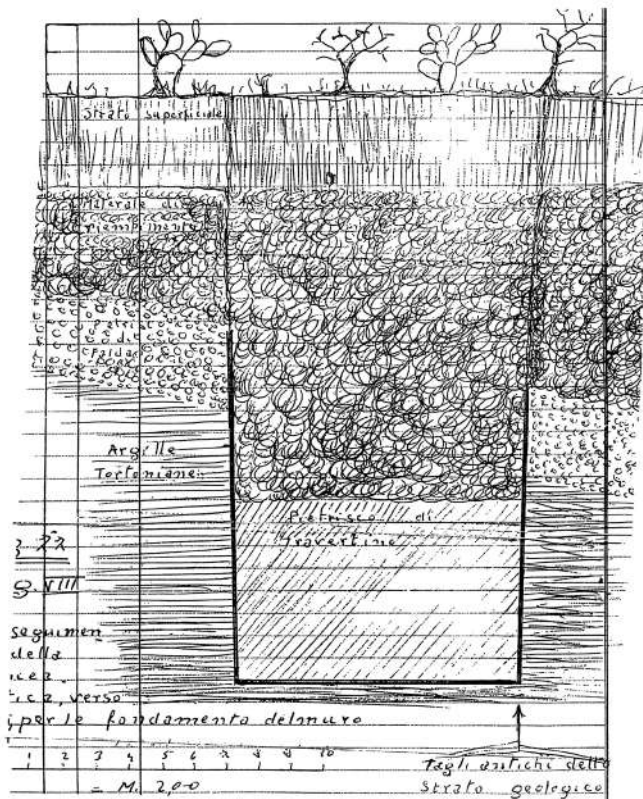 Strato superficiale
Materale di
riempimento
detriti
di
falda
Argille
Tortoniane
Pietrisco di
Travertino
g. VIII
seguimen
della
tica, verso
per le fondamenta del muro
1 2 3 4 5 6 7 8 9 10
= M. 2,00
Tagli antichi dello
Strato geologico